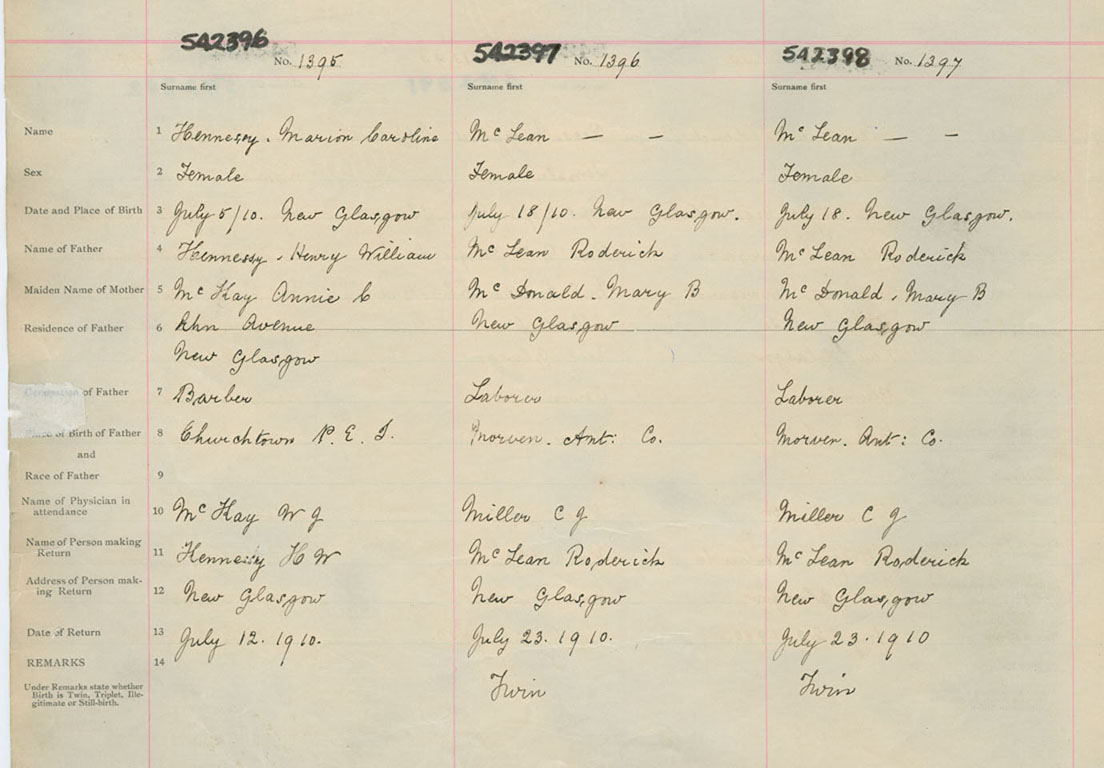 542396 No. 1395 542397 No. 1396 542398 No. 1397
Surname first Surname first Surname first
Name 1 Hennessy. Marion Caroline Mc Lean — — Mc Lean — —
Sex 2 Female Female Female
Date and Place of Birth 3 July 5/10. New Glasgow July 18/10. New Glasgow. July 18. New Glasgow.
Name of Father 4 Hennessy. Henry William Mc Lean Roderick Mc Lean Roderick
Maiden Name of Mother 5 Mc Kay Annie C Mc Donald. Mary B Mc Donald. Mary B
Residence of Father 6 Avenue New Glasgow New Glasgow
New Glasgow
of Father 7 Barber Laborer Laborer
Place of Birth of Father 8 Churchtown P. E. I. Morven. Ant: Co. Morven. Ant: Co.
and
Race of Father 9
Name of Physician in
attendance 10 Mc Kay W J Miller C J Miller C J
Name of Person making
Return 11 Hennessy H W Mc Lean Roderick Mc Lean Roderick
Address of Person mak-
ing Return 12 New Glasgow New Glasgow New Glasgow
Date of Return 13 July 12. 1910. July 23. 1910. July 23. 1910
REMARKS 14
Under Remarks state whether
Birth is Twin, Triplet, Ille-
gitimate or Still-birth. Twin Twin